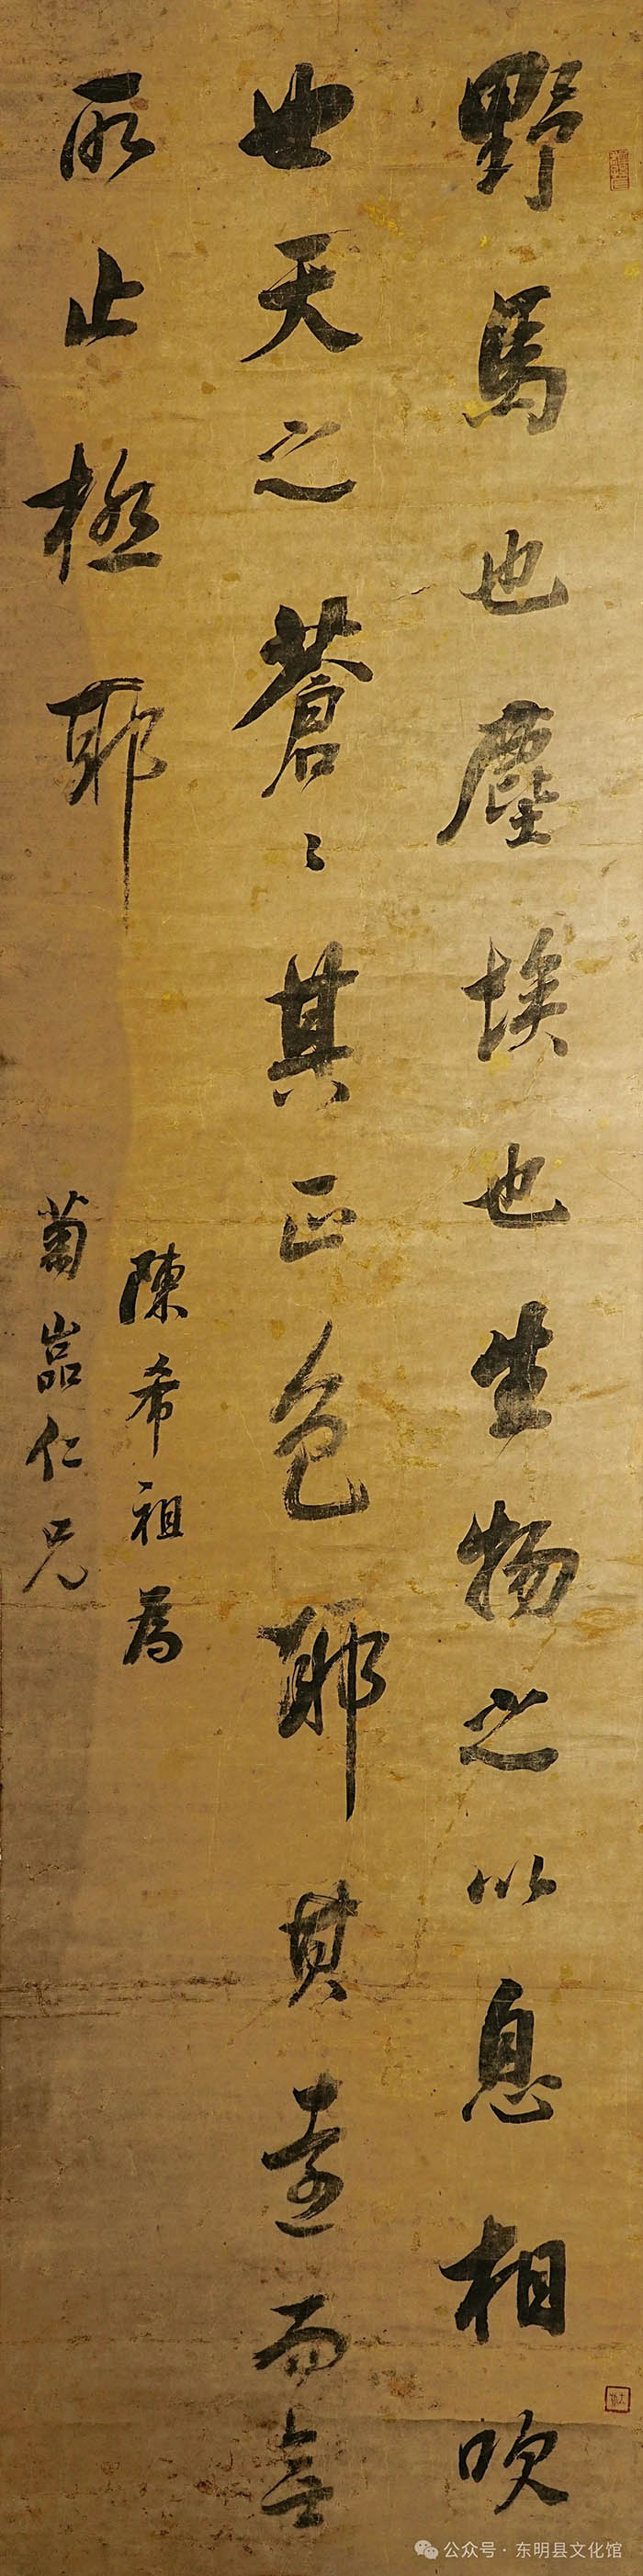 野馬也塵埃也生物之以息相吹
也天之蒼〻其正色耶其遠而無
所止極耶
陳希祖為
菊嵓仁兄
公众号·东明县文化馆